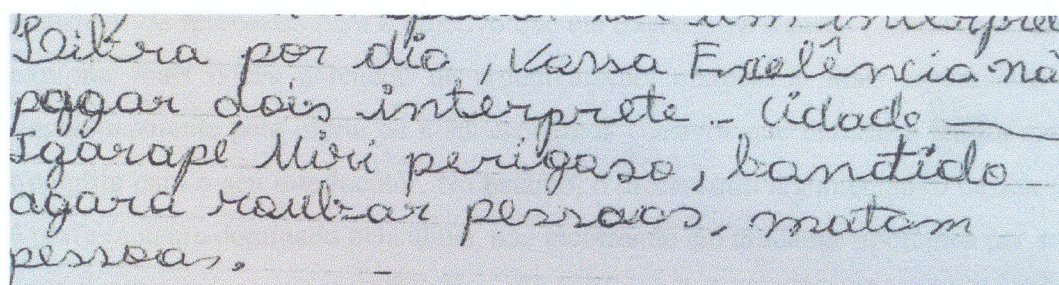 um interpre
Libra por dia, Vossa Exelência nã
pagar dois interprete - Cidade
Igarapé Miri perigoso, bandido
agara roubar pessoas, matam
pessoas.